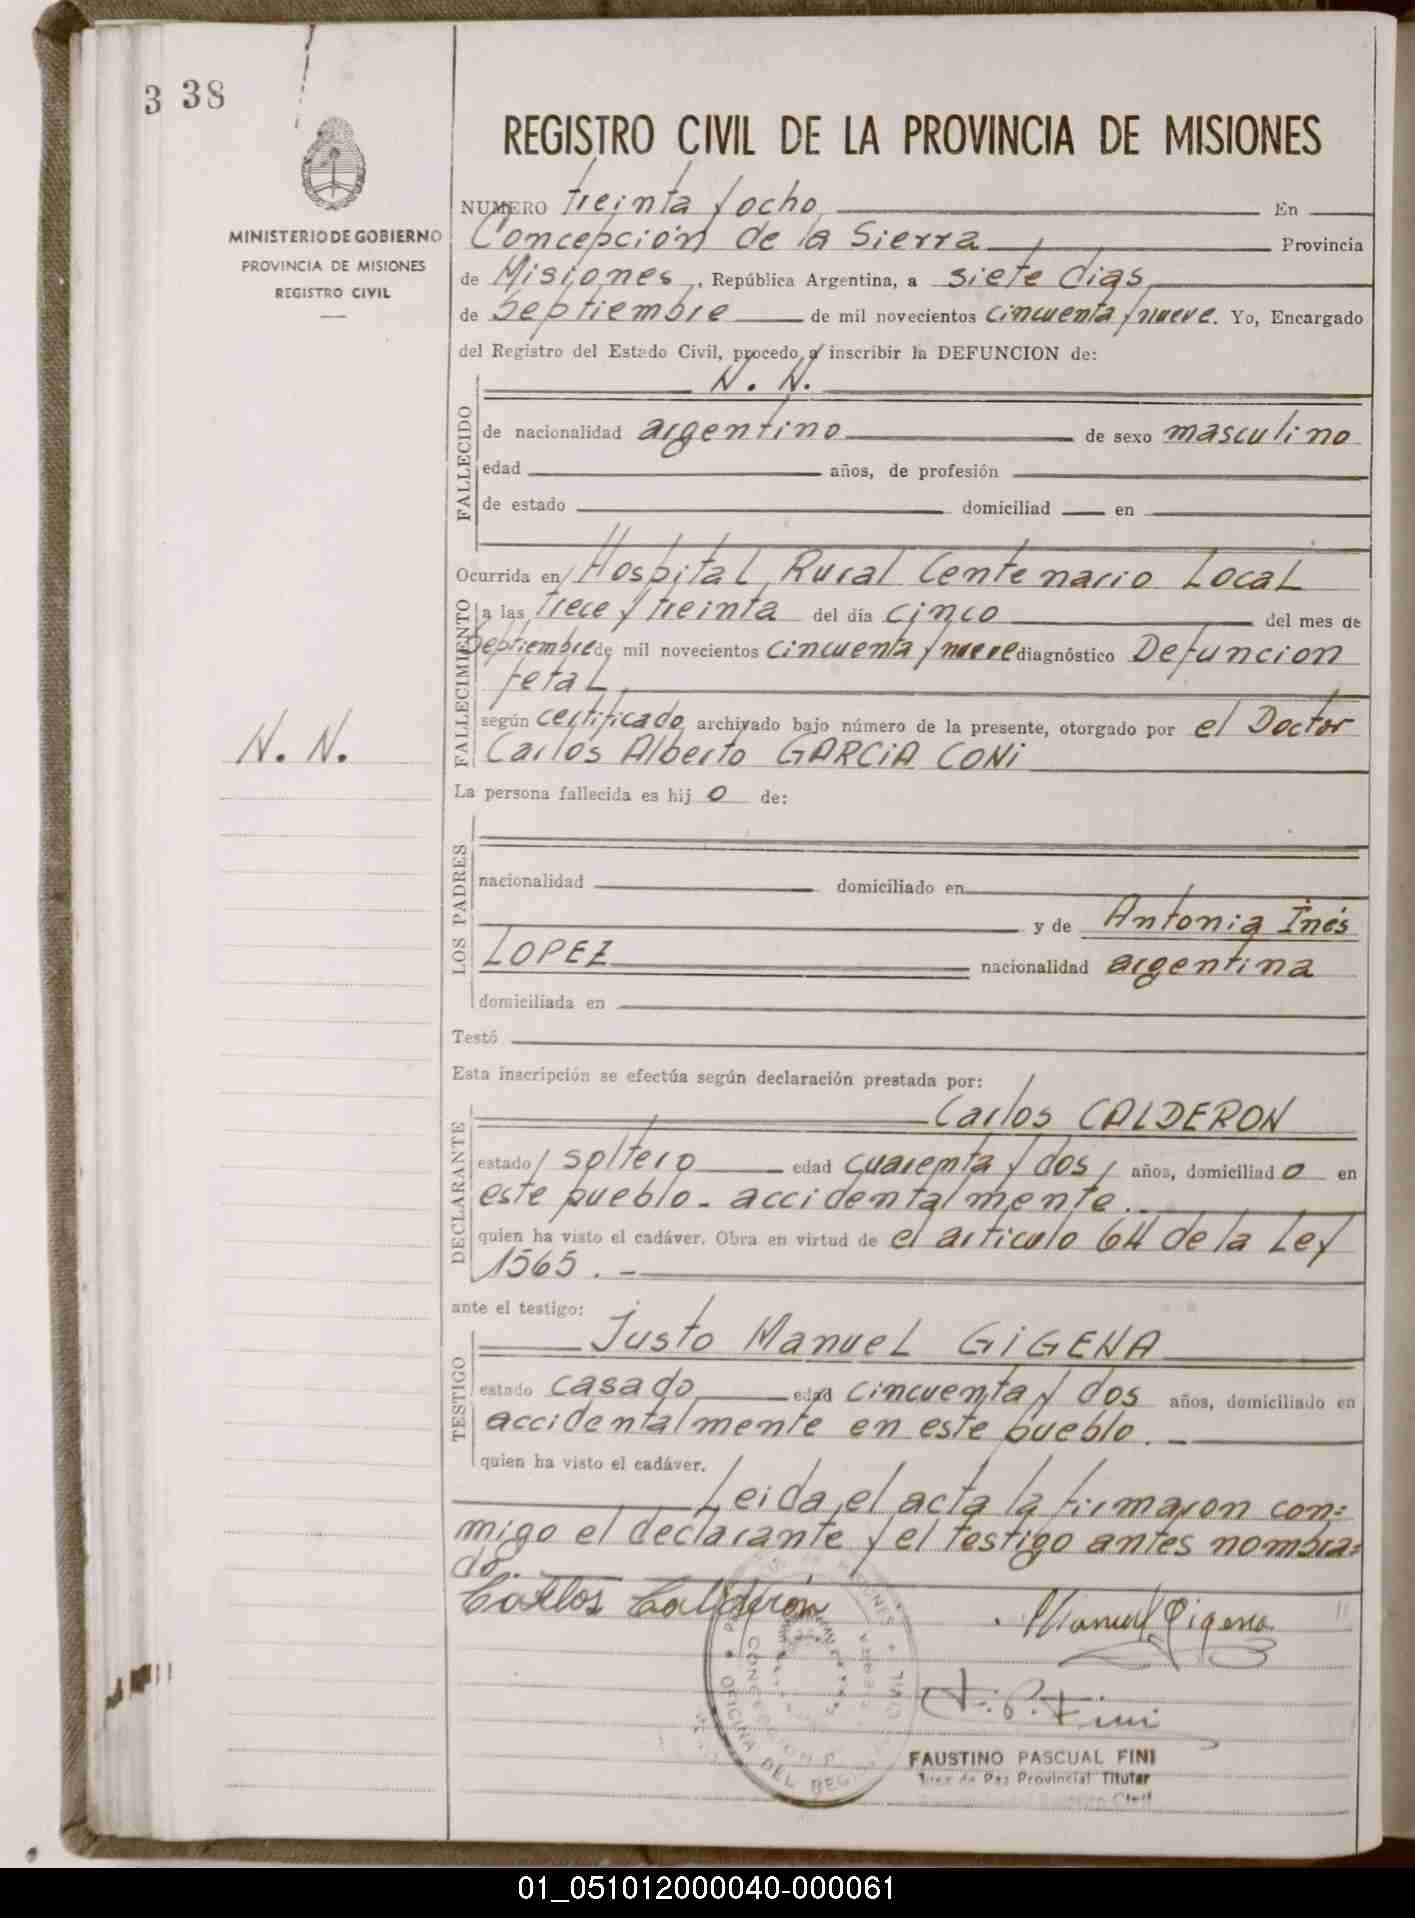 3 38
MINISTERIO DE GOBIERNO
PROVINCIA DE MISIONES
REGISTRO CIVIL
N. N.
REGISTRO CIVIL DE LA PROVINCIA DE MISIONES
NUMERO treinta y ocho En
Concepción de la Sierra Provincia
de Misiones, República Argentina, a siete dias
de Septiembre de mil novecientos cincuenta y nueve. Yo, Encargado
del Registro del Estado Civil, procedo a inscribir la DEFUNCION de:
N. N.
FALLECIDO
de nacionalidad argentino de sexo masculino
edad años, de profesión
de estado domiciliad en
Ocurrida en Hospital Rural Centenario Local
FALLECIMIENTO
a las trece y treinta del día cinco del mes de
Septiembre de mil novecientos cincuenta y nueve diagnóstico Defuncion
fetal
según certificado archivado bajo número de la presente, otorgado por el Doctor
Carlos Alberto GARCIA CONI
La persona fallecida es hij o de:
LOS PADRES
nacionalidad domiciliado en
y de Antonia Inés
LOPEZ nacionalidad argentina
domiciliada en
Testó
Esta inscripción se efectúa según declaración prestada por:
DECLARANTE
Carlos CALDERON
estado soltero edad cuarenta y dos, años, domiciliad o en
este pueblo - accidentalmente.
quien ha visto el cadáver. Obra en virtud de el articulo 64 de la Ley
1565. -
ante el testigo:
TESTIGO
Justo Manuel GIGENA
estado casado edad cincuenta y dos años, domiciliado en
accidentalmente en este pueblo. -
quien ha visto el cadáver.
Leida el acta la firmaron con=
migo el declarante y el testigo antes nombra=
do.
Carlos Calderón Manuel Gigena
F. P. Fini
OFICINA DEL REG
CONCEPCION
FAUSTINO PASCUAL FINI
Juez de Paz Provincial Titular
01_051012000040-000061